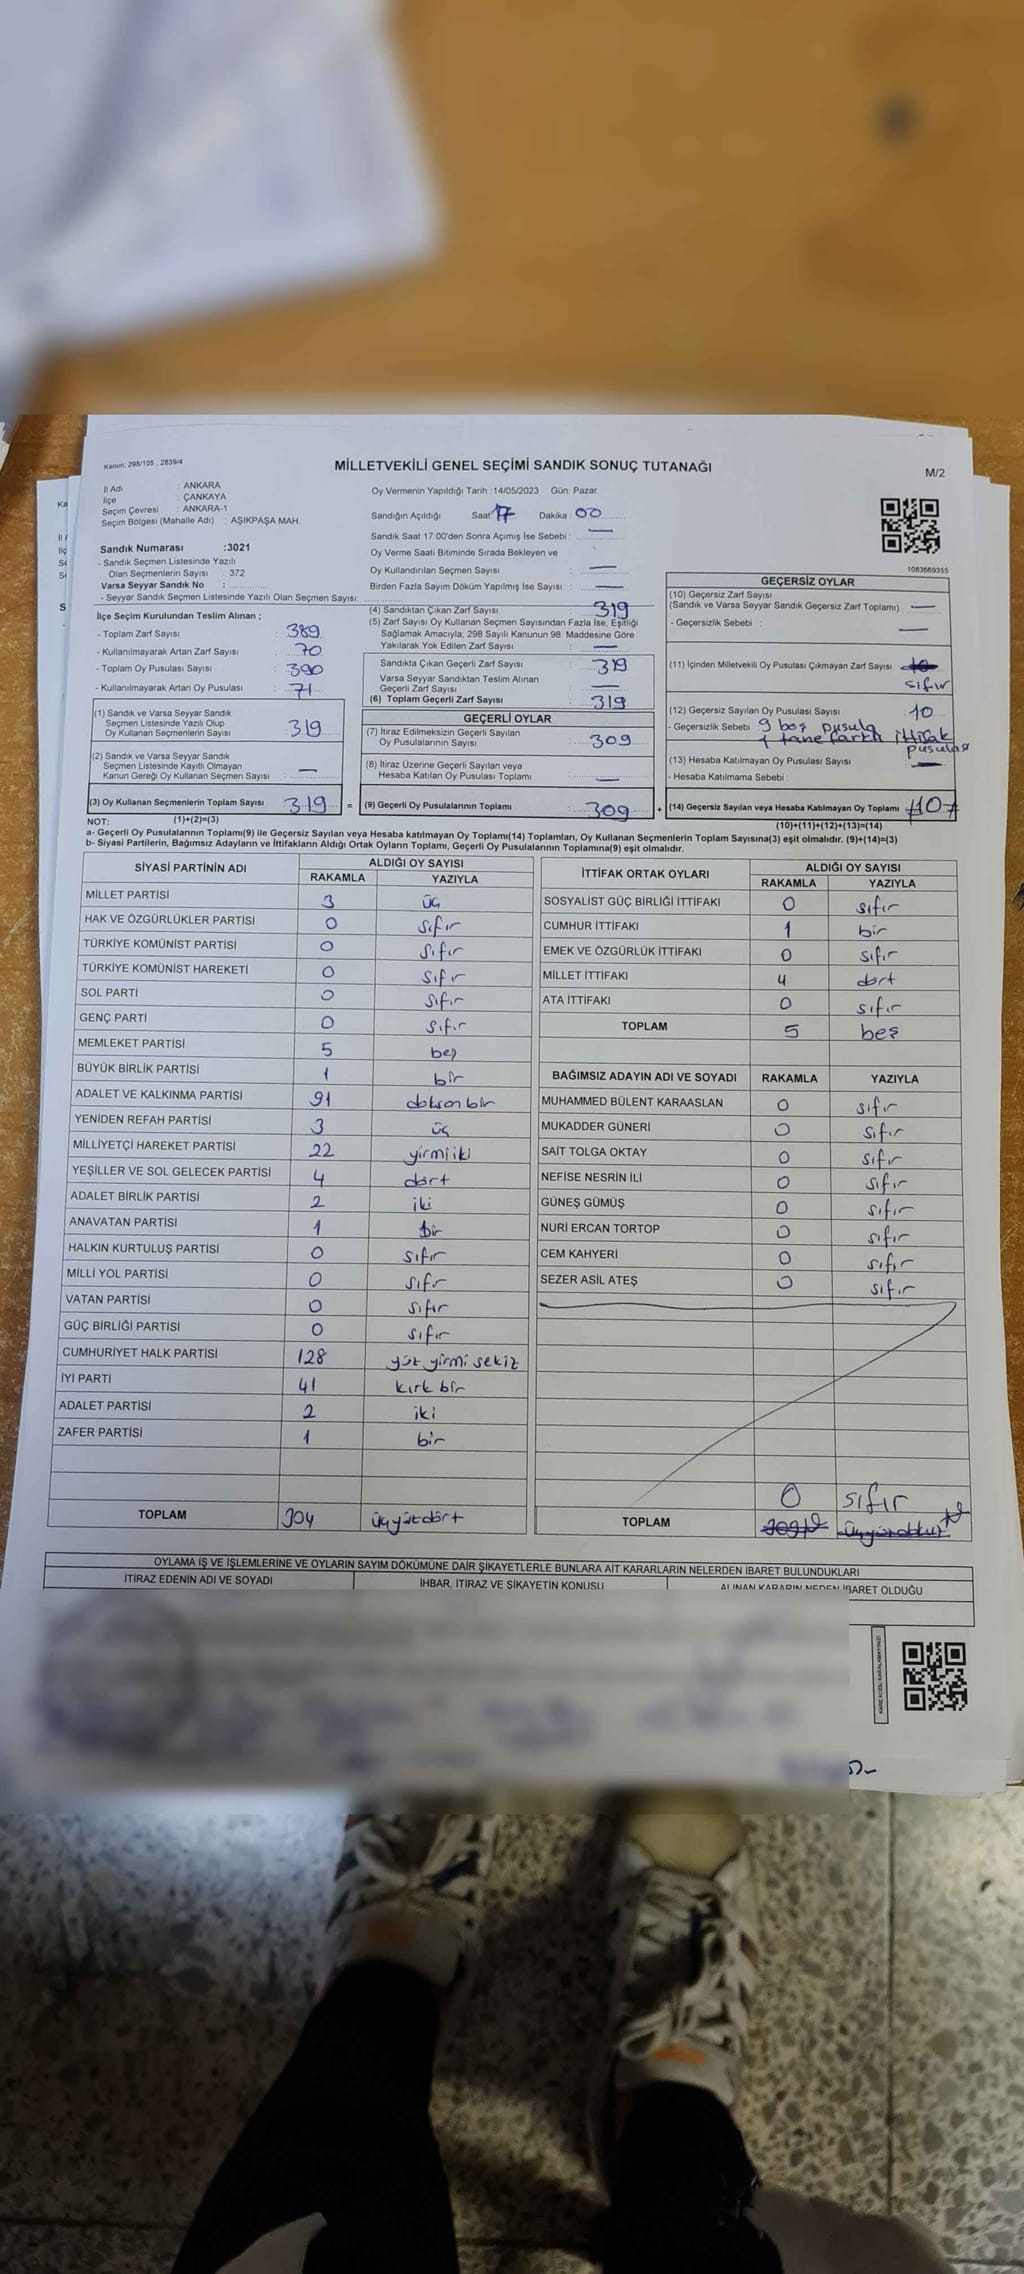 Kanun: 298/105 , 2839/4
MİLLETVEKİLİ GENEL SEÇİMİ SANDIK SONUÇ TUTANAĞI
M/2
İl Adı : ANKARA
İlçe : ÇANKAYA
Seçim Çevresi : ANKARA-1
Seçim Bölgesi (Mahalle Adı) : AŞIKPAŞA MAH.
Sandık Numarası :3021
- Sandık Seçmen Listesinde Yazılı
Olan Seçmenlerin Sayısı : 372
Varsa Seyyar Sandık No :
- Seyyar Sandık Seçmen Listesinde Yazılı Olan Seçmen Sayısı:
Oy Vermenin Yapıldığı Tarih :14/05/2023 Gün: Pazar
Sandığın Açıldığı Saat 17 Dakika : 00
Sandık Saat 17:00'den Sonra Açımış İse Sebebi : —
Oy Verme Saati Bitiminde Sırada Bekleyen ve
Oy Kullandırılan Seçmen Sayısı : —
Birden Fazla Sayım Döküm Yapılmış İse Sayısı : —
1083669355
İlçe Seçim Kurulundan Teslim Alınan ;
- Toplam Zarf Sayısı : 389
- Kullanılmayarak Artan Zarf Sayısı : 70
- Toplam Oy Pusulası Sayısı : 390
- Kullanılmayarak Artan Oy Pusulası : 71
(1) Sandık ve Varsa Seyyar Sandık
Seçmen Listesinde Yazılı Olup
Oy Kullanan Seçmenlerin Sayısı : 319
(2) Sandık ve Varsa Seyyar Sandık
Seçmen Listesinde Kayıtlı Olmayan
Kanun Gereği Oy Kullanan Seçmen Sayısı : —
(3) Oy Kullanan Seçmenlerin Toplam Sayısı : 319 =
(4) Sandıktan Çıkan Zarf Sayısı : 319
(5) Zarf Sayısı Oy Kullanan Seçmen Sayısından Fazla İse, Eşitliği
Sağlamak Amacıyla, 298 Sayılı Kanunun 98. Maddesine Göre
Yakılarak Yok Edilen Zarf Sayısı : —
Sandıkta Çıkan Geçerli Zarf Sayısı : 319
Varsa Seyyar Sandıktan Teslim Alınan
Geçerli Zarf Sayısı : —
(6) Toplam Geçerli Zarf Sayısı : 319
GEÇERLİ OYLAR
(7) İtiraz Edilmeksizin Geçerli Sayılan
Oy Pusulalarının Sayısı : 309
(8) İtiraz Üzerine Geçerli Sayılan veya
Hesaba Katılan Oy Pusulası Toplamı : —
(9) Geçerli Oy Pusulalarının Toplamı : 309 +
GEÇERSİZ OYLAR
(10) Geçersiz Zarf Sayısı
(Sandık ve Varsa Seyyar Sandık Geçersiz Zarf Toplamı) : —
- Geçersizlik Sebebi : —
(11) İçinden Milletvekili Oy Pusulası Çıkmayan Zarf Sayısı : 10
sıfır
(12) Geçersiz Sayılan Oy Pusulası Sayısı : 10
- Geçersizlik Sebebi : 9 boş pusula
1 tane farklı ittifak
pusulası
(13) Hesaba Katılmayan Oy Pusulası Sayısı : —
- Hesaba Katılmama Sebebi :
(14) Geçersiz Sayılan veya Hesaba Katılmayan Oy Toplamı : #10#
NOT: (1)+(2)=(3)
(10)+(11)+(12)+(13)=(14)
a- Geçerli Oy Pusulalarının Toplamı(9) ile Geçersiz Sayılan veya Hesaba katılmayan Oy Toplamı(14) Toplamları, Oy Kullanan Seçmenlerin Toplam Sayısına(3) eşit olmalıdır. (9)+(14)=(3)
b- Siyasi Partilerin, Bağımsız Adayların ve İttifakların Aldığı Ortak Oyların Toplamı, Geçerli Oy Pusulalarının Toplamına(9) eşit olmalıdır.
SİYASİ PARTİNİN ADI ALDIĞI OY SAYISI
RAKAMLA YAZIYLA
MİLLET PARTİSİ 3 üç
HAK VE ÖZGÜRLÜKLER PARTİSİ 0 sıfır
TÜRKİYE KOMÜNİST PARTİSİ 0 sıfır
TÜRKİYE KOMÜNİST HAREKETİ 0 sıfır
SOL PARTİ 0 sıfır
GENÇ PARTİ 0 sıfır
MEMLEKET PARTİSİ 5 beş
BÜYÜK BİRLİK PARTİSİ 1 bir
ADALET VE KALKINMA PARTİSİ 91 doksan bir
YENİDEN REFAH PARTİSİ 3 üç
MİLLİYETÇİ HAREKET PARTİSİ 22 yirmi iki
YEŞİLLER VE SOL GELECEK PARTİSİ 4 dört
ADALET BİRLİK PARTİSİ 2 iki
ANAVATAN PARTİSİ 1 bir
HALKIN KURTULUŞ PARTİSİ 0 sıfır
MİLLİ YOL PARTİSİ 0 sıfır
VATAN PARTİSİ 0 sıfır
GÜÇ BİRLİĞİ PARTİSİ 0 sıfır
CUMHURİYET HALK PARTİSİ 128 yüz yirmi sekiz
İYİ PARTİ 41 kırk bir
ADALET PARTİSİ 2 iki
ZAFER PARTİSİ 1 bir
TOPLAM 304 üçyüzdört
İTTİFAK ORTAK OYLARI ALDIĞI OY SAYISI
RAKAMLA YAZIYLA
SOSYALİST GÜÇ BİRLİĞİ İTTİFAKI 0 sıfır
CUMHUR İTTİFAKI 1 bir
EMEK VE ÖZGÜRLÜK İTTİFAKI 0 sıfır
MİLLET İTTİFAKI 4 dört
ATA İTTİFAKI 0 sıfır
TOPLAM 5 beş
BAĞIMSIZ ADAYIN ADI VE SOYADI RAKAMLA YAZIYLA
MUHAMMED BÜLENT KARAASLAN 0 sıfır
MUKADDER GÜNERİ 0 sıfır
SAİT TOLGA OKTAY 0 sıfır
NEFİSE NESRİN İLİ 0 sıfır
GÜNEŞ GÜMÜŞ 0 sıfır
NURİ ERCAN TORTOP 0 sıfır
CEM KAHYERİ 0 sıfır
SEZER ASİL ATEŞ 0 sıfır
0 sıfır
TOPLAM 309 üçyüzdokuz
OYLAMA İŞ VE İŞLEMLERİNE VE OYLARIN SAYIM DÖKÜMÜNE DAİR ŞİKAYETLERLE BUNLARA AİT KARARLARIN NELERDEN İBARET BULUNDUKLARI
İTİRAZ EDENİN ADI VE SOYADI İHBAR, İTİRAZ VE ŞİKAYETİN KONUSU ALINAN KARARIN NEDEN İBARET OLDUĞU
KARE KODU KARALAMAYINIZ!